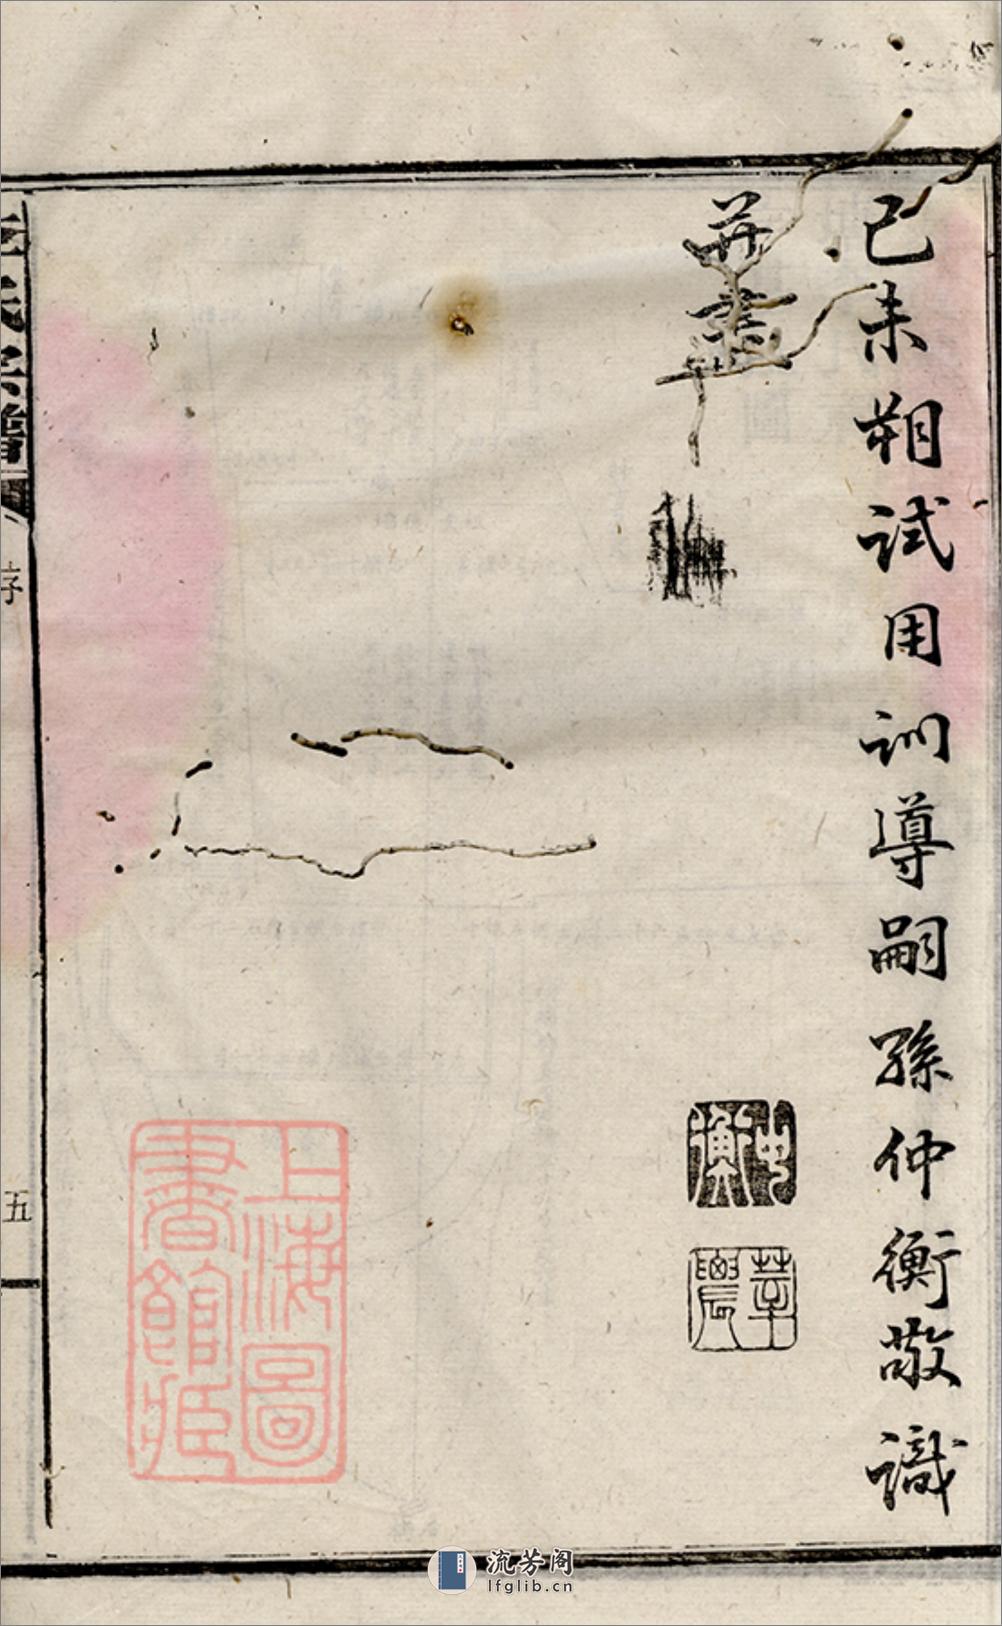 己未朔試用訓導嗣孫仲衡敬識
并書
仲衡
莘農
上海圖
書館藏
序
五
流芳阁
lfglib.cn